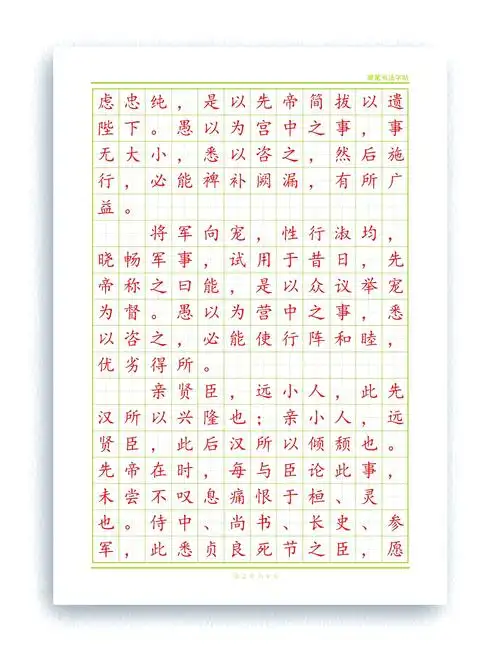 硬笔书法字帖
虑忠纯，是以先帝简拔以遗
陛下。愚以为宫中之事，事
无大小，悉以咨之，然后施
行，必能裨补阙漏，有所广
益。
将军向宠，性行淑均，
晓畅军事，试用于昔日，先
帝称之曰能，是以众议举宠
为督。愚以为营中之事，悉
以咨之，必能使行阵和睦，
优劣得所。
亲贤臣，远小人，此先
汉所以兴隆也；亲小人，远
贤臣，此后汉所以倾颓也。
先帝在时，每与臣论此事，
未尝不叹息痛恨于桓、灵
也。侍中、尚书、长史、参
军，此悉贞良死节之臣，愿